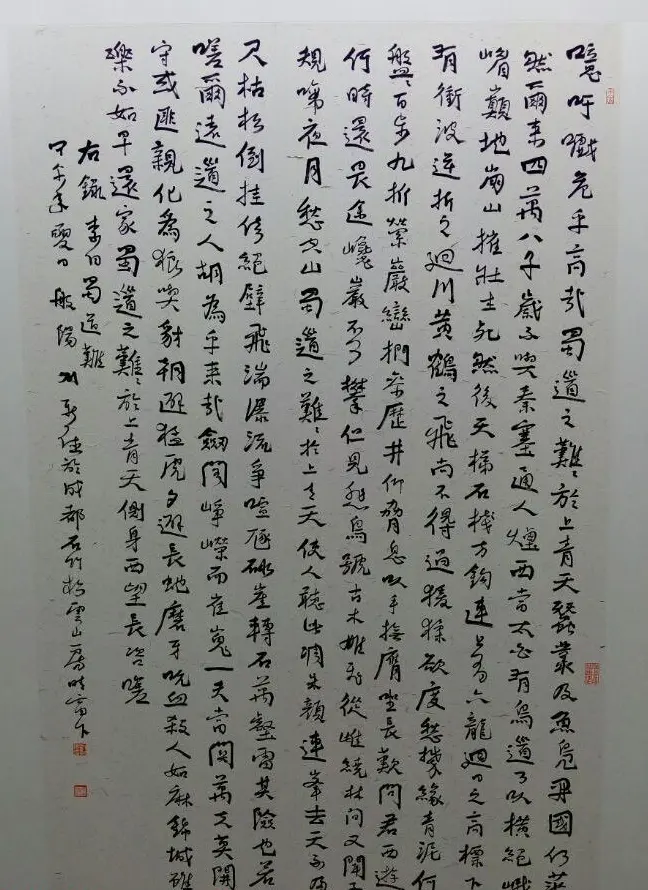 噫吁戲危乎高哉蜀道之難難於上青天蠶叢及魚鳧開國何茫
然爾來四萬八千歲不與秦塞通人煙西當太白有鳥道可以橫絕峨
嵋巔地崩山摧壯士死然後天梯石棧方鉤連上有六龍迴日之高標下
有衝波逆折之迴川黃鶴之飛尚不得過猨猱欲度愁攀緣青泥何
盤盤百步九折縈巖巒捫參歷井仰脅息以手撫膺坐長歎問君西遊
何時還畏途巉巖不可攀但見悲鳥號古木雄飛從雌繞林間又聞子
規啼夜月愁空山蜀道之難難於上青天使人聽此凋朱顏連峯去天不盈
尺枯松倒挂倚絕壁飛湍瀑流爭喧豗砯崖轉石萬壑雷其險也若
嗟爾遠道之人胡為乎來哉劍閣崢嶸而崔嵬一夫當關萬夫莫開
守或匪親化為狼與豺朝避猛虎夕避長蛇磨牙吮血殺人如麻錦城雖
樂不如早還家蜀道之難難於上青天側身西望長咨嗟
右錄李白蜀道難
甲午年夏日 於成都石竹 雲山房